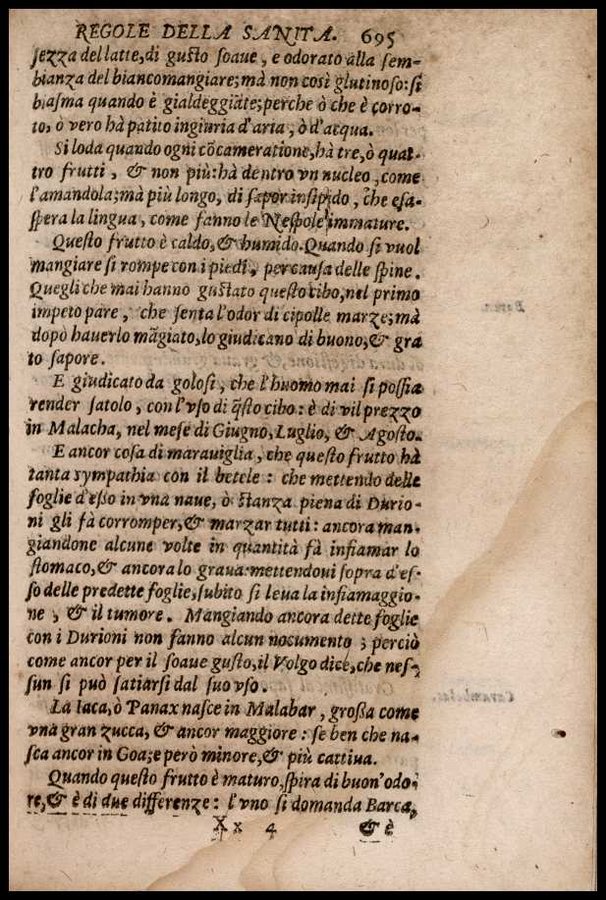 REGOLE DELLA SANITA. 695
ſezza del latte, di guſto ſoaue, e odorato alla ſem-
bianza del biancomangiare; mà non così glutinoſo: ſi
biaſma quando è gialdeggiãte; perche ò che è corro-
to, ò vero hà patito ingiuria d'aria, ò d'acqua.
Si loda quando ogni cõcameratione, hà tre, ò quat-
tro frutti, & non più: hà dentro vn nucleo, come
l'amandola; mà più longo, di ſapor inſipido, che eſa-
ſpera la lingua, come fanno le Neſpole immature.
Queſto frutto è caldo, & humido. Quando ſi vuol
mangiare ſi rompe con i piedi, per cauſa delle ſpine.
Quegli che mai hanno guſtato queſto cibo, nel primo
impeto pare, che ſenta l'odor di cipolle marze; mà
dopò hauerlo mãgiato, lo giudicano di buono, & gra
to ſapore.
E giudicato da goloſi, che l'huomo mai ſi poſſia
render ſatolo, con l'vſo di q̃ſto cibo: è di vil prezzo
in Malacha, nel meſe di Giugno, Luglio, & Agoſto.
E ancor coſa di marauiglia, che queſto frutto hà
tanta sympathia con il betele: che mettendo delle
foglie d'eſſo in vna naue, ò ſtanza piena di Durio-
ni gli fà corromper, & marzar tutti: ancora man-
giandone alcune volte in quantità fà infiamar lo
ſtomaco, & ancora lo graua: mettendoui ſopra d'eſ-
ſo delle predette foglie, ſubito ſi leua la infiamaggio-
ne, & il tumore. Mangiando ancora dette foglie
con i Durioni non fanno alcun nocumento; perciò
come ancor per il ſoaue guſto, il Volgo dice, che neſ-
ſun ſi può ſatiarſi dal ſuo vſo.
La Iaca, ò Panax naſce in Malabar, groſſa come
vna gran zucca, & ancor maggiore: ſe ben che na-
ſca ancor in Goa; e però minore, & più cattiua.
Quando queſto frutto è maturo, ſpira di buon'odo-
re, & è di due differenze: l'vno ſi domanda Barca,
Xx 4 & è